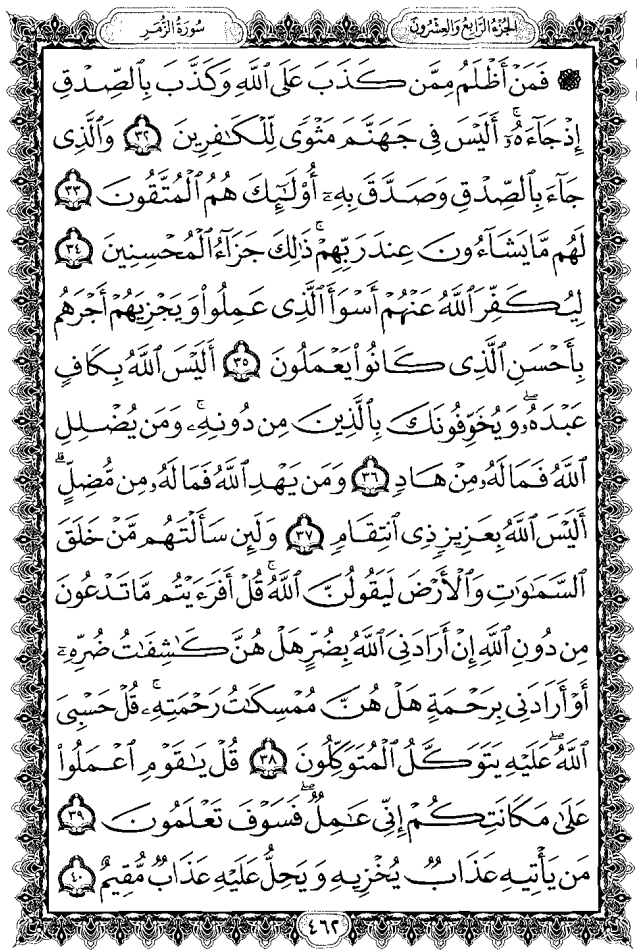 سُورَةُ الزُّمَرِ
الجُزْءُ الرَّابِعُ وَالعِشْرُونَ
۞ فَمَنْ أَظْلَمُ مِمَّن كَذَبَ عَلَى ٱللَّهِ وَكَذَّبَ بِٱلصِّدْقِ
إِذْ جَآءَهُۥٓۚ أَلَيْسَ فِى جَهَنَّمَ مَثْوًى لِّلْكَـٰفِرِينَ ٣٢ وَٱلَّذِى
جَآءَ بِٱلصِّدْقِ وَصَدَّقَ بِهِۦٓ أُو۟لَـٰٓئِكَ هُمُ ٱلْمُتَّقُونَ ٣٣
لَهُم مَّا يَشَآءُونَ عِندَ رَبِّهِمْۚ ذَٰلِكَ جَزَآءُ ٱلْمُحْسِنِينَ ٣٤
لِيُكَفِّرَ ٱللَّهُ عَنْهُمْ أَسْوَأَ ٱلَّذِى عَمِلُوا۟ وَيَجْزِيَهُمْ أَجْرَهُم
بِأَحْسَنِ ٱلَّذِى كَانُوا۟ يَعْمَلُونَ ٣٥ أَلَيْسَ ٱللَّهُ بِكَافٍ
عَبْدَهُۥۖ وَيُخَوِّفُونَكَ بِٱلَّذِينَ مِن دُونِهِۦۚ وَمَن يُضْلِلِ
ٱللَّهُ فَمَا لَهُۥ مِنْ هَادٍ ٣٦ وَمَن يَهْدِ ٱللَّهُ فَمَا لَهُۥ مِن مُّضِلٍّۗ
أَلَيْسَ ٱللَّهُ بِعَزِيزٍ ذِى ٱنتِقَامٍ ٣٧ وَلَئِن سَأَلْتَهُم مَّنْ خَلَقَ
ٱلسَّمَـٰوَٰتِ وَٱلْأَرْضَ لَيَقُولُنَّ ٱللَّهُۚ قُلْ أَفَرَءَيْتُم مَّا تَدْعُونَ
مِن دُونِ ٱللَّهِ إِنْ أَرَادَنِىَ ٱللَّهُ بِضُرٍّ هَلْ هُنَّ كَـٰشِفَـٰتُ ضُرِّهِۦٓ
أَوْ أَرَادَنِى بِرَحْمَةٍ هَلْ هُنَّ مُمْسِكَـٰتُ رَحْمَتِهِۦۚ قُلْ حَسْبِىَ
ٱللَّهُۖ عَلَيْهِ يَتَوَكَّلُ ٱلْمُتَوَكِّلُونَ ٣٨ قُلْ يَـٰقَوْمِ ٱعْمَلُوا۟
عَلَىٰ مَكَانَتِكُمْ إِنِّى عَـٰمِلٌۖ فَسَوْفَ تَعْلَمُونَ ٣٩
مَن يَأْتِيهِ عَذَابٌ يُخْزِيهِ وَيَحِلُّ عَلَيْهِ عَذَابٌ مُّقِيمٌ ٤٠
٤٦٢